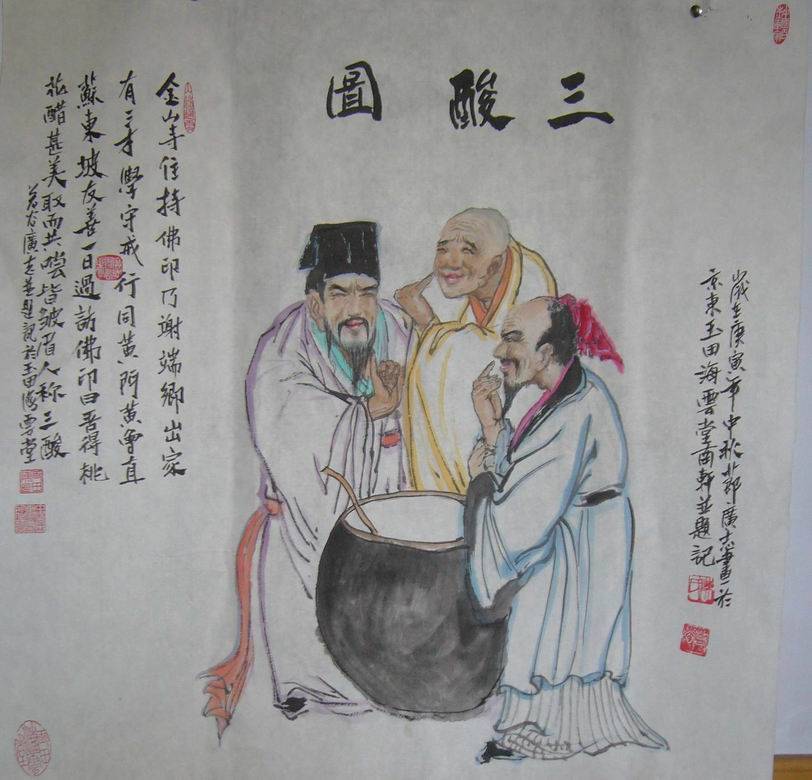 三酸圖
歲在庚寅年中秋廣志畫於
京東玉田海雲堂南軒並題記
金山寺住持佛印乃謝端卿出家
有三學守戒行同黃門黃魯直
蘇東坡友善一日過訪佛印曰吾得桃
花醋甚美取而共嚐皆皺眉人称三酸
廣志並題記於玉田海雲堂